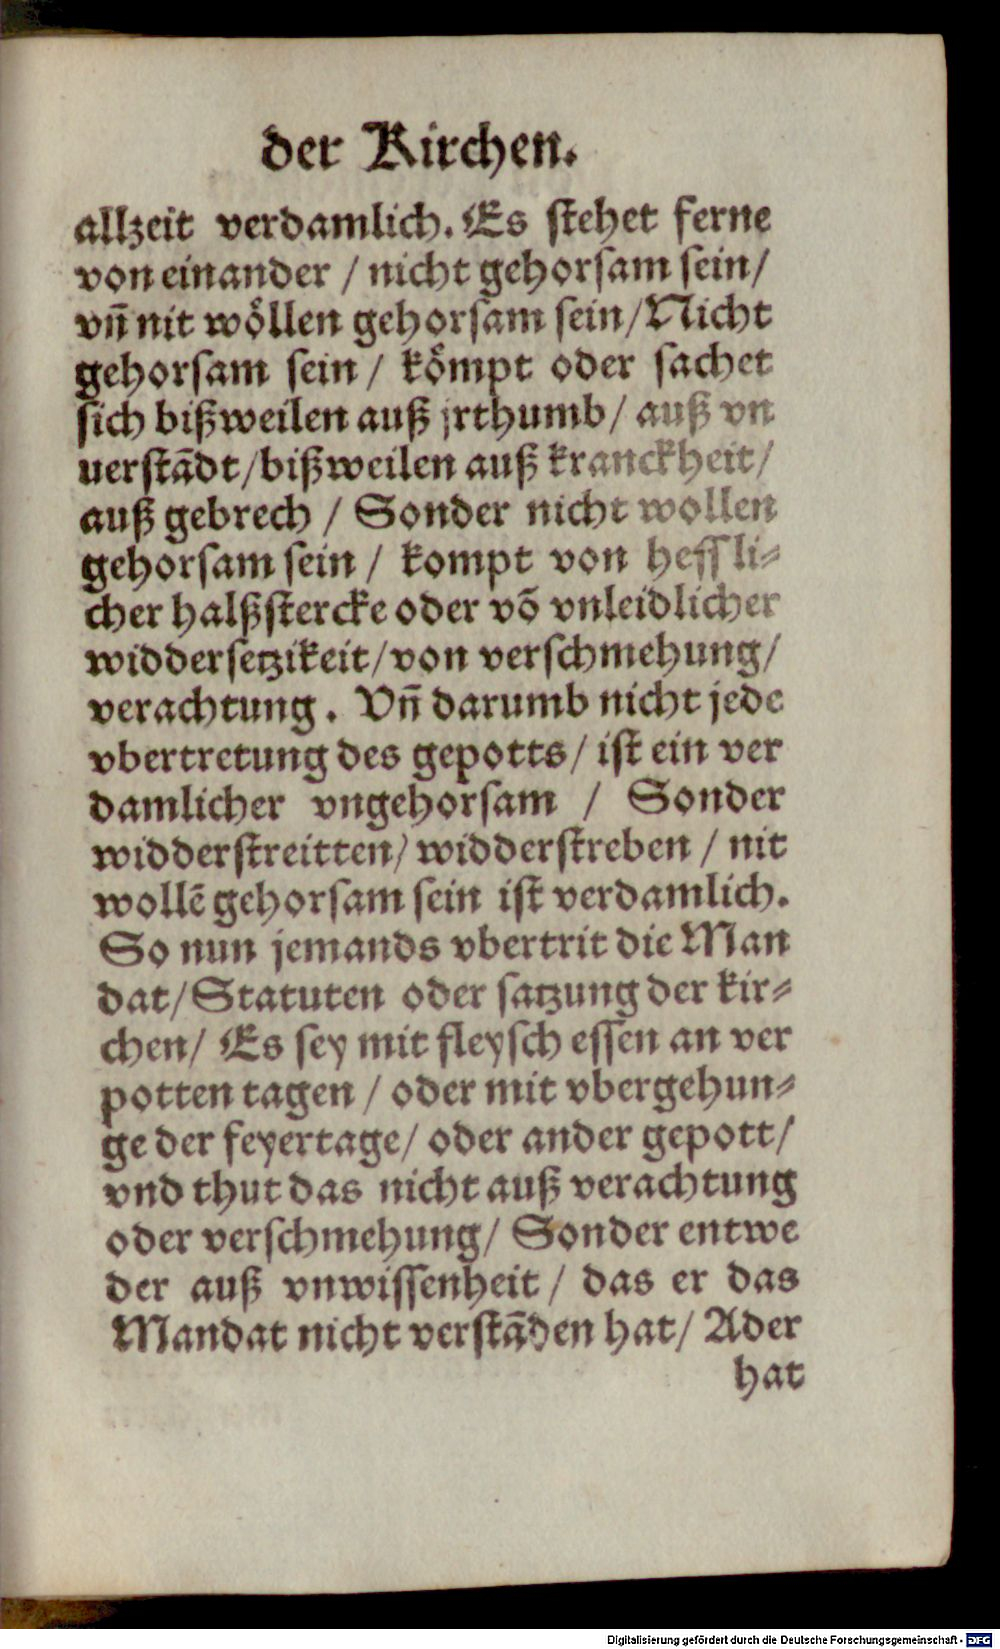 der Kirchen.
allzeit verdamlich. Es stehet ferne
von einander / nicht gehorsam sein/
vñ nit wöllen gehorsam sein/Nicht
gehorsam sein / kömpt oder sachet
sich bißweilen auß jrthumb/ auß vn
uerstãdt/bißweilen auß kranckheit/
auß gebrech / Sonder nicht wollen
gehorsam sein / kompt von hessli-
cher halßstercke oder võ vnleidlicher
widdersetzikeit/von verschmehung/
verachtung. Vñ darumb nicht jede
vbertretung des gepotts/ ist ein ver
damlicher vngehorsam / Sonder
widderstreitten/ widderstreben / nit
wollẽ gehorsam sein ist verdamlich.
So nun jemands vbertrit die Man
dat/Statuten oder satzung der kir-
chen/ Es sey mit fleysch essen an ver
potten tagen / oder mit vbergehun-
ge der feyertage/ oder ander gepott/
vnd thut das nicht auß verachtung
oder verschmehung/ Sonder entwe
der auß vnwissenheit / das er das
Mandat nicht verstãden hat/ Ader
hat
Digitalisierung gefördert durch die Deutsche Forschungsgemeinschaft - DFG